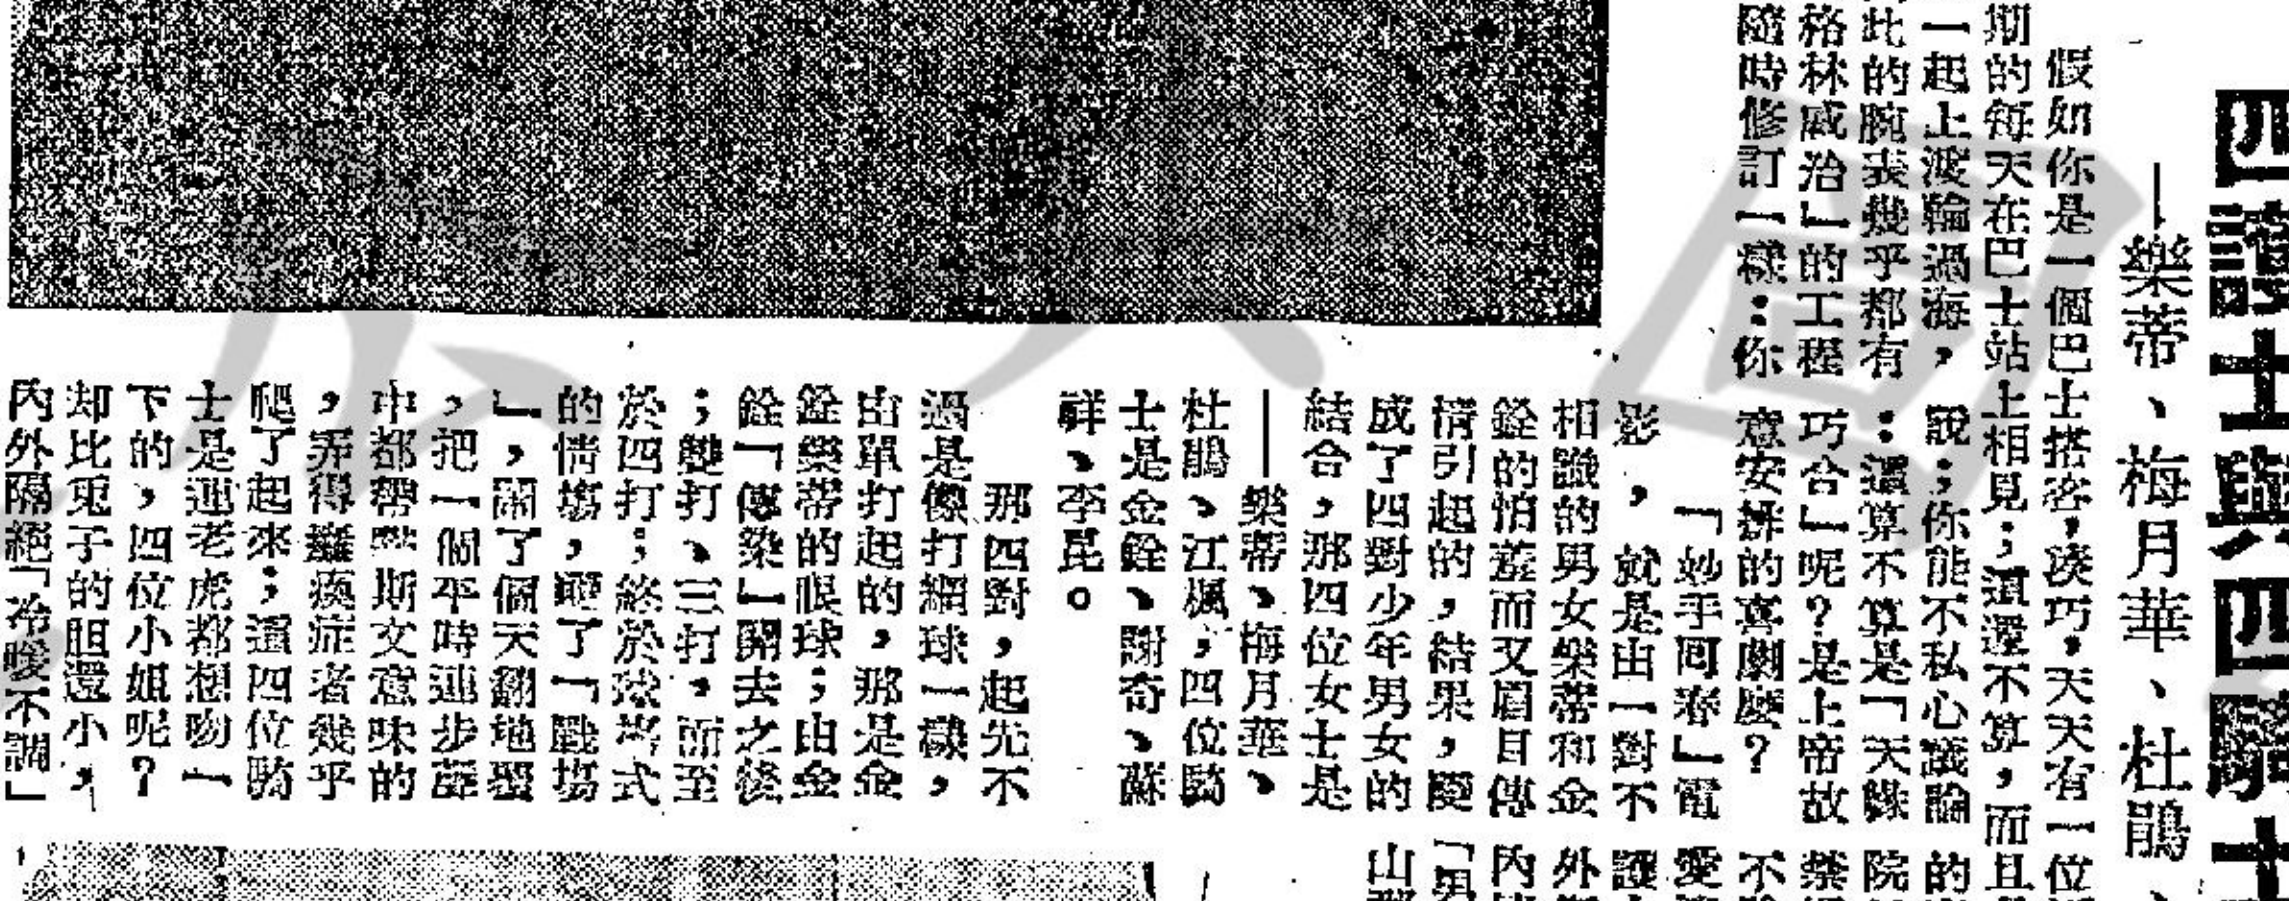 四淑士與四騎士
——樂蒂、梅月華、杜鵑、
假如你是一個巴士搭客，湊巧，天天有一位
期的每天在巴士站上相見；這還不算，而且
一起上渡輪過海，
此的腕表幾乎都有
格林威治」的工程
隨時修訂一樣：你
說；你能不私心議論
：這算不算是「天緣
巧合」呢？是上帝故
意安排的喜劇麼？
「妙手回春」電
影，就是由一對不
相識的男女樂蒂和金
銓的怕羞而又眉目傳
情引起的，結果，變
成了四對少年男女的
結合，那四位女士是
——樂蒂、梅月華、
杜鵑、江楓，四位騎
士是金銓、謝奇、蘇
祥、李昆。
那四對，起先不
過是像打網球一樣，
由單打起的，那是金
銓樂蒂的眼球；由金
銓「傳染」開去之後
；雙打、三打，而至
於四打；終於球場式
的情場，變了「戰場
」，鬧了個天翻地覆
，把一個平時連步
中都帶點斯文意味的
，弄得癱瘓症者幾乎
爬了起來；這四位騎
士是連老虎都想吻一
下的，四位小姐呢？
却比兎子的胆還小，
內外隔絕「冷暖不調」
的
院
禁
不
愛
護
外
內
「男
山